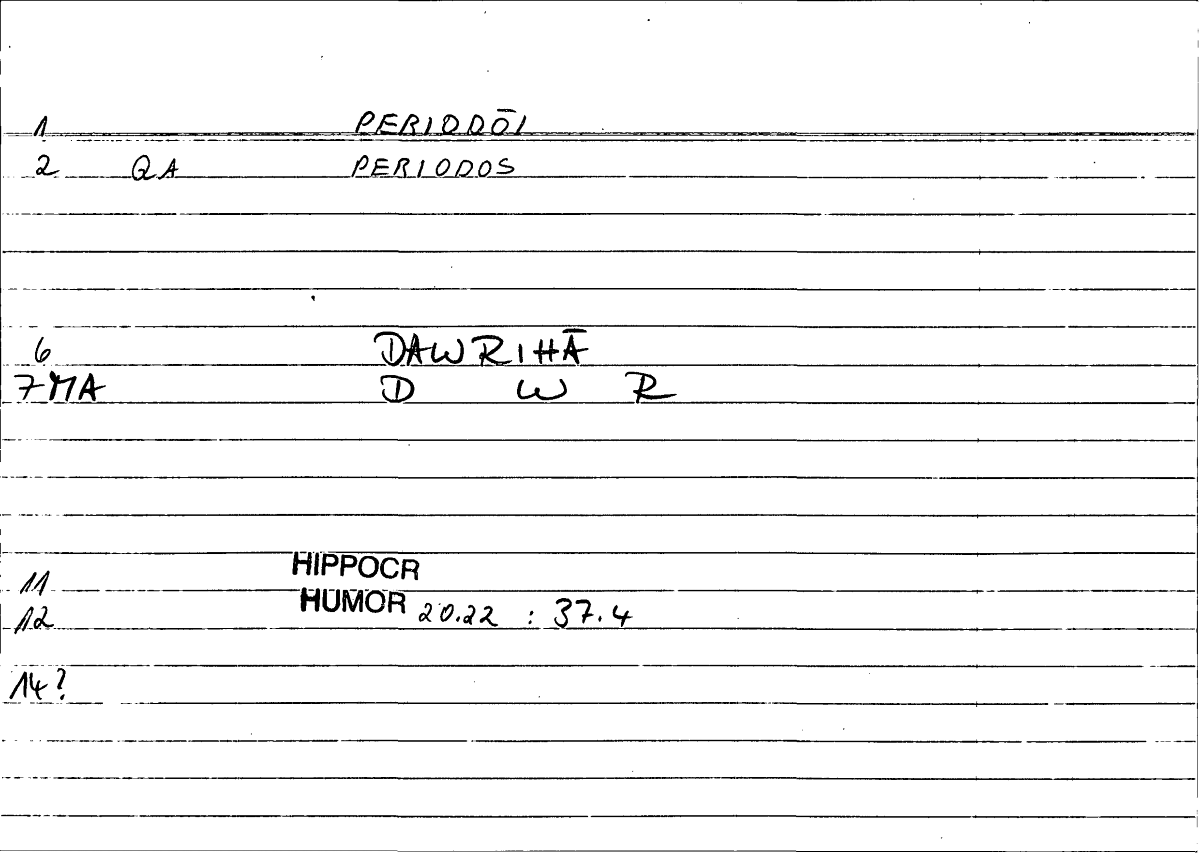 1 PERIODŌI
2 QA PERIODOS
6 DAWRIHĀ
7 MA D W R
HIPPOCR
11
HUMOR 20.22 : 37.4
12
14?